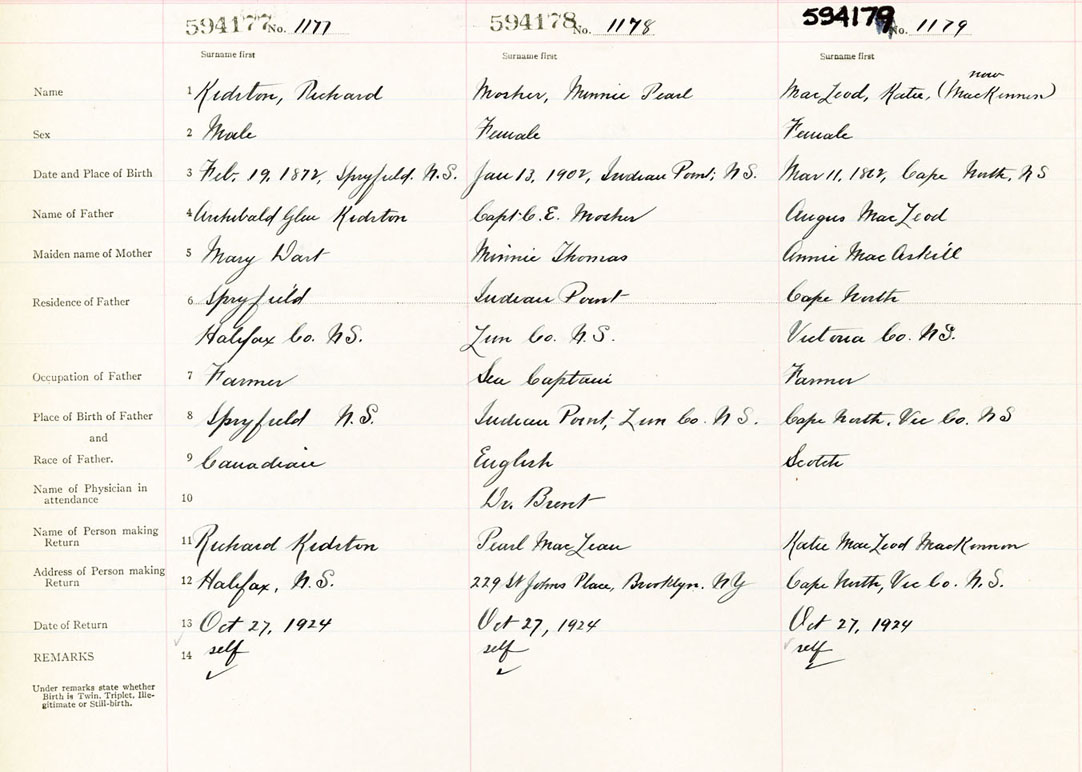 594177 No. 1177 594178 No. 1178 594179 No. 1179
Surname first Surname first Surname first
now
Name 1 Kidston, Richard Mosher, Minnie Pearl MacLeod, Katie, (MacKinnon)
Sex 2 Male Female Female
Date and Place of Birth 3 Feb. 19, 1872, Spryfield. N.S. Jan 13, 1902, Indian Point, N.S. Mar 11, 1862, Cape North, N S
Name of Father 4 Archibald Glen Kidston Capt. C. E. Mosher Angus MacLeod
Maiden name of Mother 5 Mary Dart Minnie Thomas Annie MacAskill
Residence of Father 6 Spryfield Indian Point Cape North
Halifax Co. N.S. Lun Co. N.S. Victoria Co. N.S.
Occupation of Father 7 Farmer Sea Captain Farmer
Place of Birth of Father 8 Spryfield N.S. Indian Point, Lun Co. N S. Cape North, Vic Co. N S
and
Race of Father. 9 Canadian English Scotch
Name of Physician in
attendance 10 Dr. Brent
Name of Person making
Return 11 Richard Kidston Pearl MacLean Katie MacLeod MacKinnon
Address of Person making
Return 12 Halifax, N.S. 229 St Johns Place, Brooklyn. NY Cape North, Vic Co. N.S.
Date of Return 13 Oct 27, 1924 Oct 27, 1924 Oct 27, 1924
REMARKS 14 self self self
Under remarks state whether
Birth is Twin, Triplet, Ille-
gitimate or Still-birth.